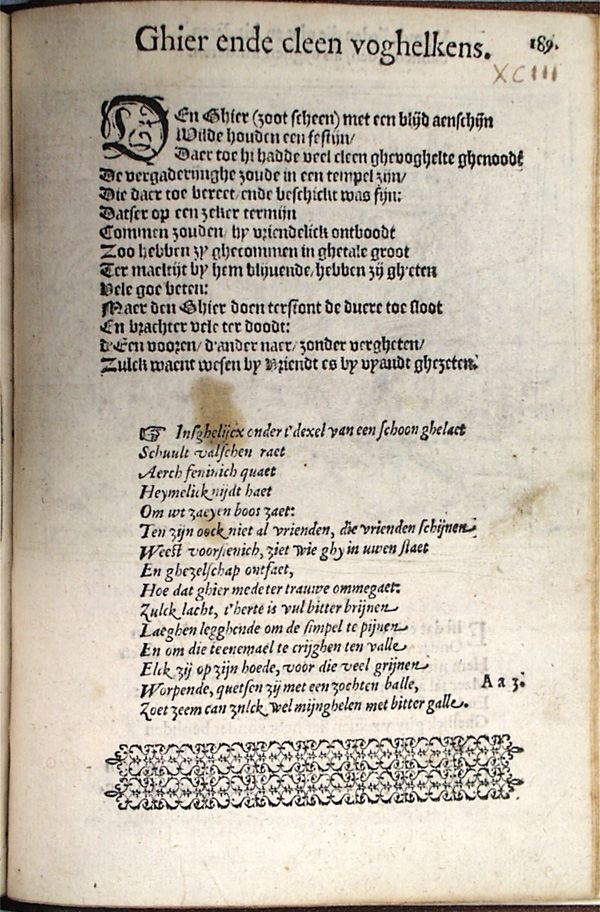 Ghier ende cleen voghelkens. 189.
XCIII
DEn Ghier (zoot scheen) met een blijd aenschijn
Wilde houden een festijn/
Daer toe hi hadde veel cleen ghevoghelte ghenoodt
De vergaderijnghe zoude in een tempel zijn/
Die daer toe bereet/ ende beschickt was fijn:
Datser op een zeker termijn
Commen zouden/ hy vriendelick ontboodt
Zoo hebben zy ghecommen in ghetale groot
Ter maeltijt by hem blijvende/ hebben zij gheten
Vele goe beten:
Maer den Ghier doen terstont de duere toe sloot
En brachter vele ter doodt:
d'Een vooren/ d'ander naer/ zonder vergheten/
Zulck waent wesen by Vriendt es by vyandt ghezeten.
☞ Insghelijcx onder t'dexel van een schoon ghelaet
Schuult valschen raet
Aerch feninich quaet
Heymelick nijdt haet
Om wt zaeyen boos zaet:
Ten zijn oock niet al vrienden, die vrienden schijnen
Weest voorsienich, ziet wie ghy in uwen staet
En ghezelschap ontfaet,
Hoe dat ghier mede ter trauwe ommegaet:
Zulck lacht, t'herte is vul bitter brijnen
Laeghen legghende om de simpel te pijnen
En om die teenemael te crijghen ten valle
Elck zij op zijn hoede, voor die veel grijnen
Worpende, quetsen zij met een zochten balle,
Zoet zeem can znlck wel mijnghelen met bitter galle.
A a 3.